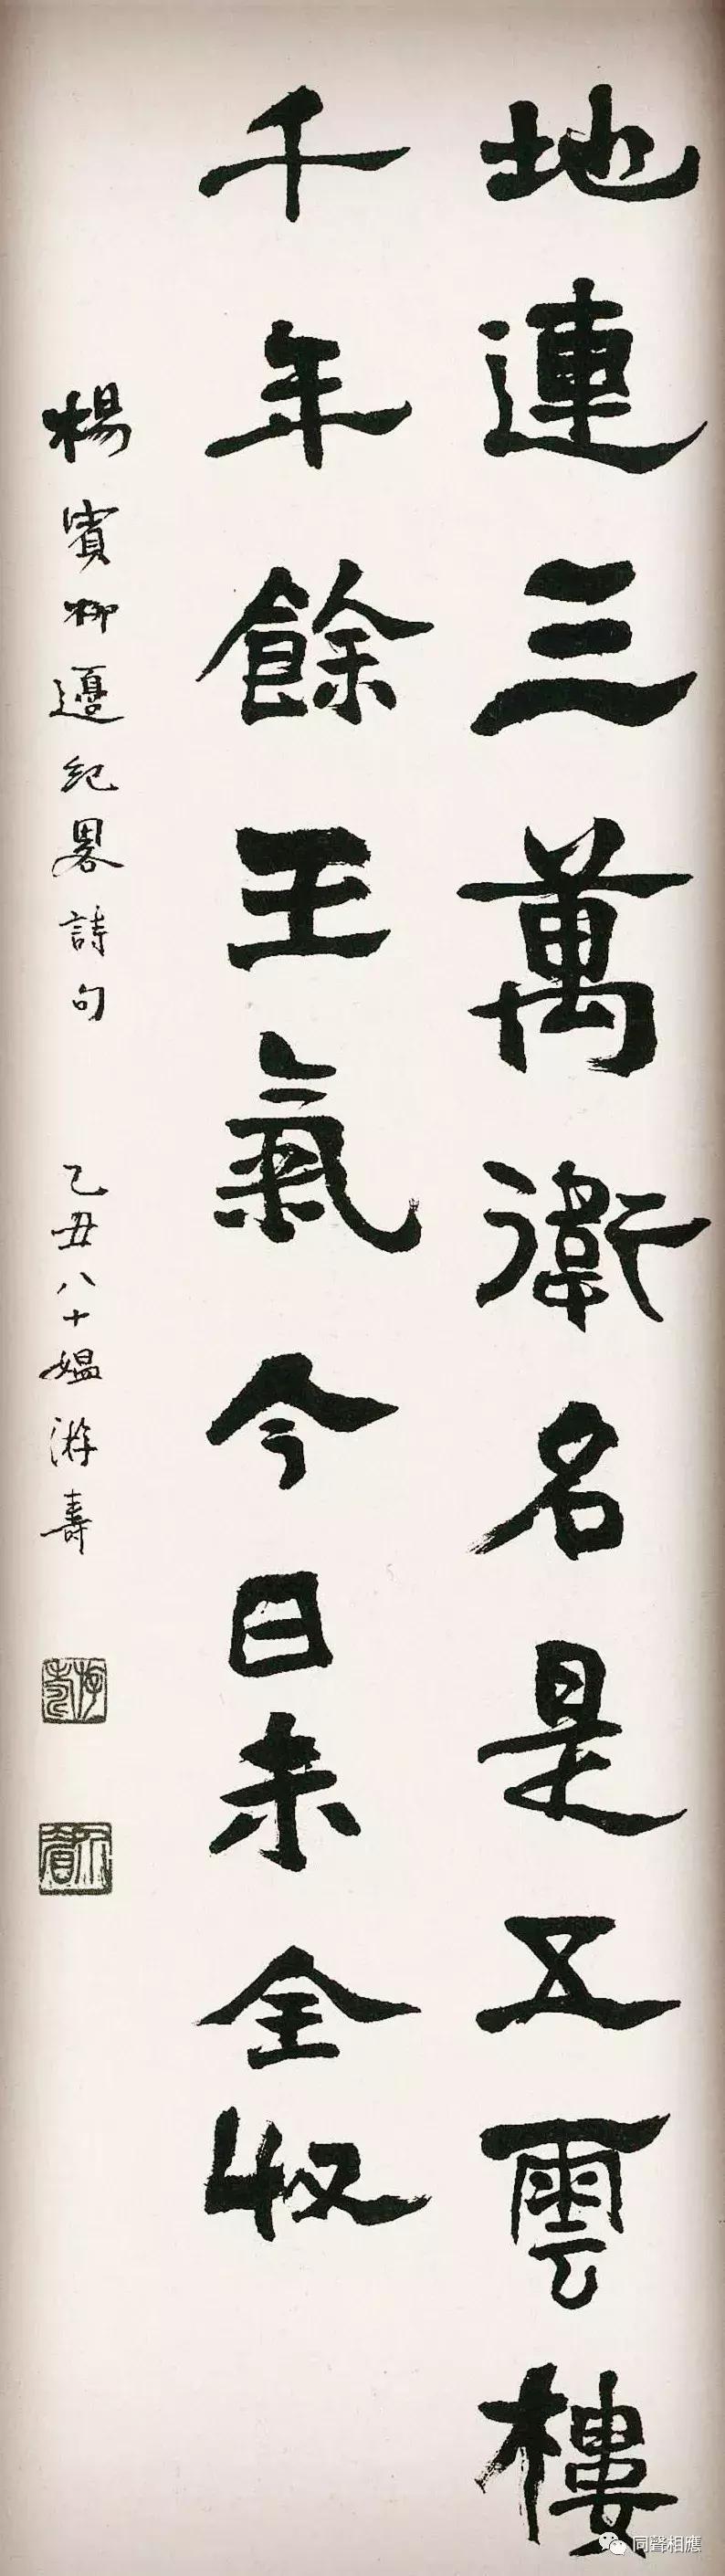 地連三萬衛名是五雲樓
千年餘王氣今日未全收
楊賓柳邊紀畧詩句 乙丑八十媼游壽
游壽
同聲相應